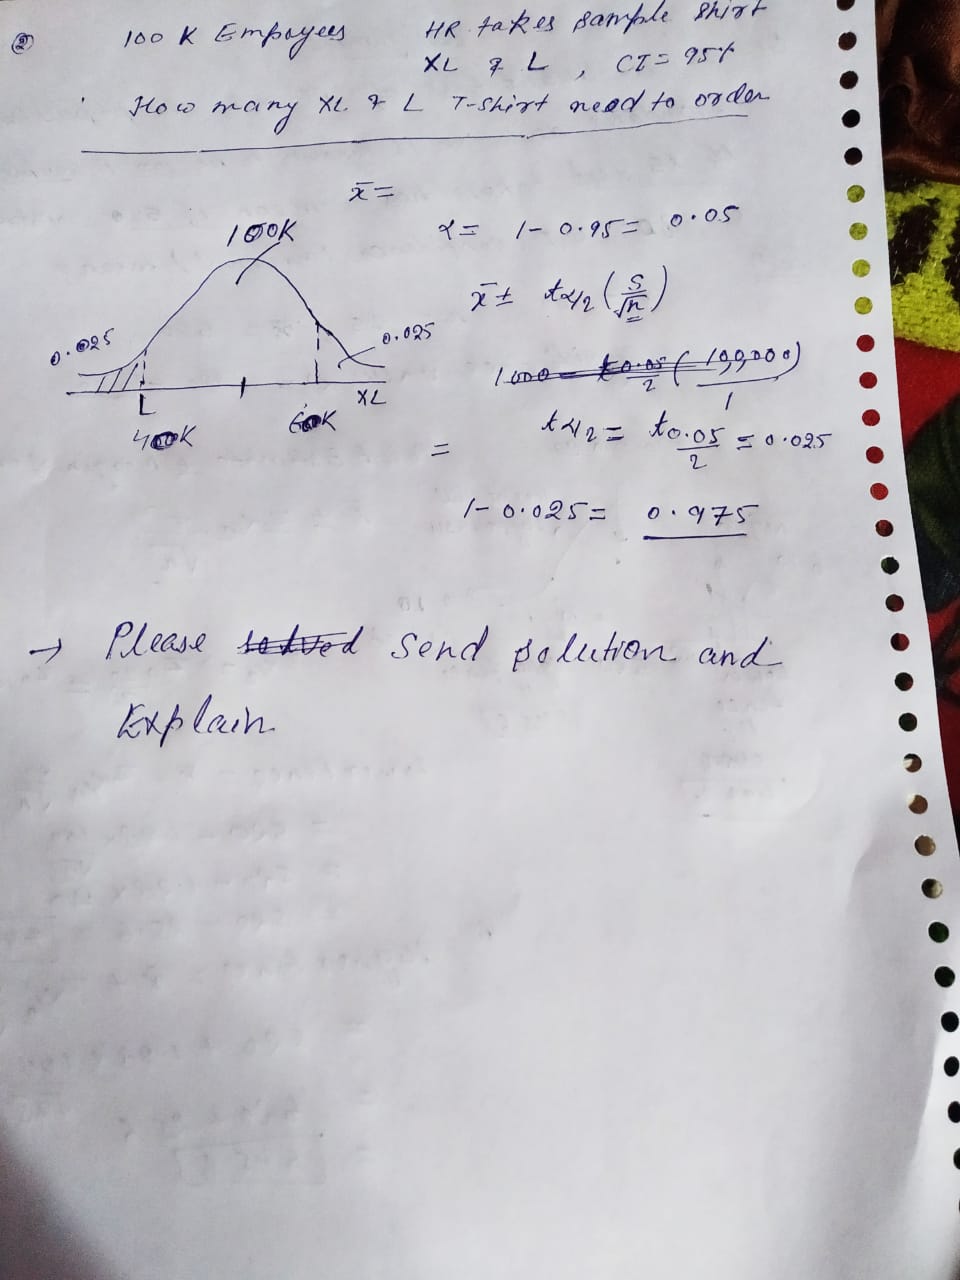 ② 100 K Empoyees HR takes sample shirt
XL & L , CI = 95%
How many XL & L T-Shirt need to order
x̄ =
100K
α = 1 - 0.95 = 0.05
x̄ ± tα/2 (S/√n)
0.025
0.025
1000 - t0.05/2 (100,000)/1
L
XL
400K
60K
tα/2 = t0.05/2 = 0.025
=
1 - 0.025 = 0.975
→ Please solved Send solution and
Explain